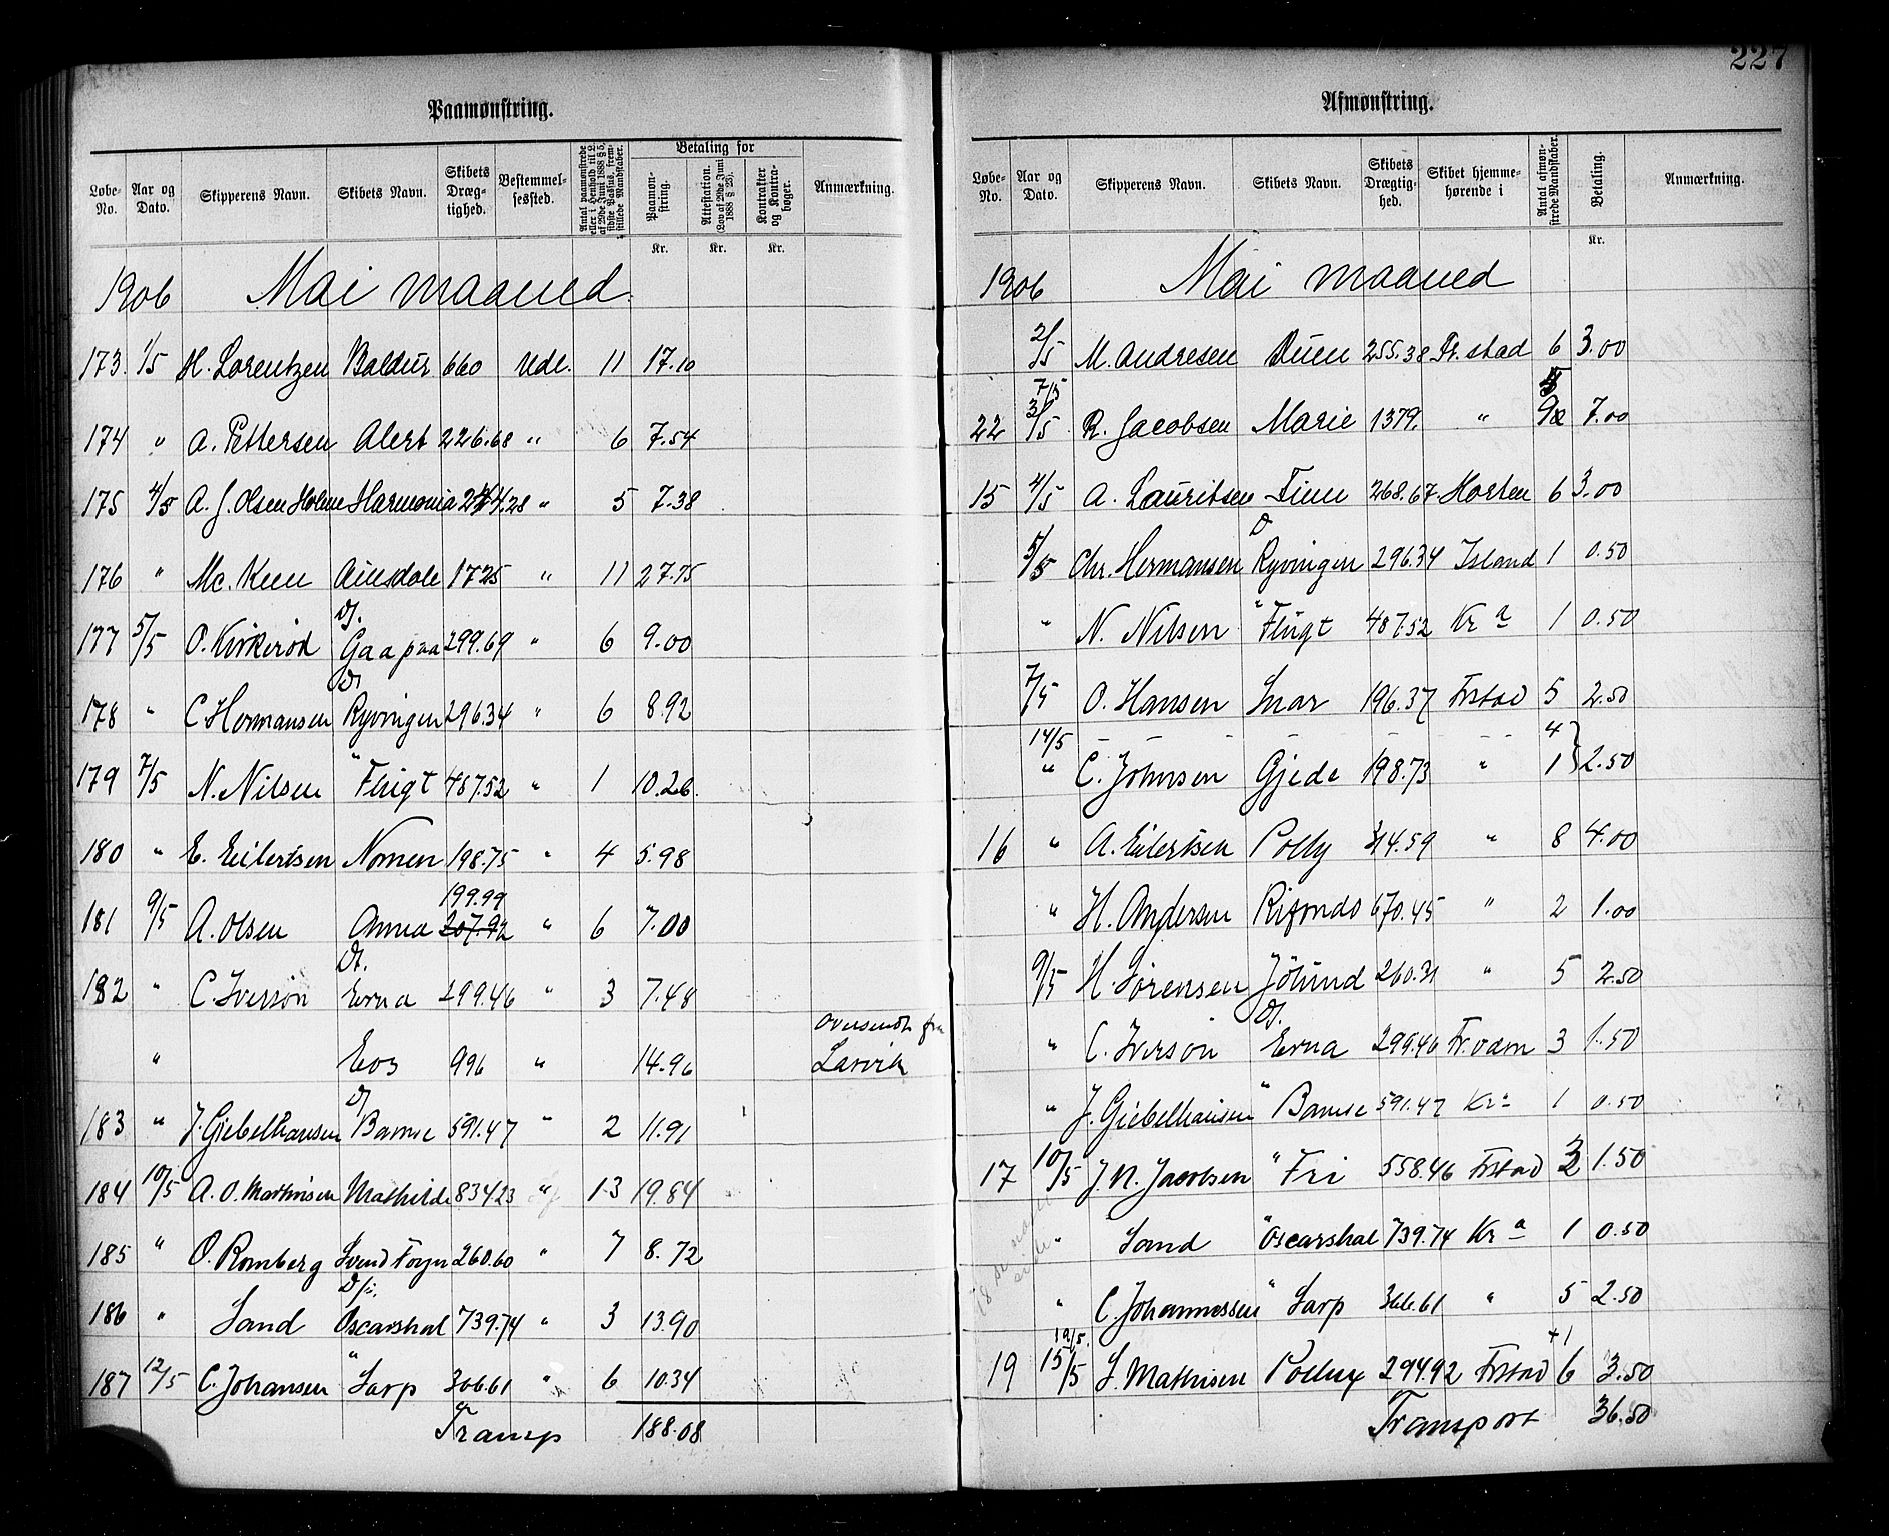 227
Paamønstring.
Løbe-No. Aar og Dato. Skipperens Navn. Skibets Navn. Skibets Dræg-tighed. Bestemmel-sessted. Antal paamønstrede Betaling for Paamøn-string. Attestation. (Lov af 29de Juni 1888 § 23). Kontrakter og Kontra-bøger. Anmærkning.
Kr. Kr. Kr.
1906 Mai maaned.
173. 1/5 H. Lorentzen Baldur 660 Udl. 11 17.10
174 " A. Pettersen Alert 226.68 " 6 7.54
175 4/5 A. J. Olsen Holme Harmonia 244.28 " 5 7.38
176 " Mc. Keen Ainsdale 1725 " 11 27.75
177 5/5 O. Kirkerød Ds. Gaapaa 299.69 " 6 9.00
178 " C Hermansen Ds Ryvingen 296.34 " 6 8.92
179 7/5 N. Nilsen " Flugt 487.52 " 1 10.26
180 " E. Eilertsen Nornen 198.75 " 4 5.98
199.99
181 9/5 A. Olsen Anna 207.92 " 6 7.00
182 " C. Iverson Ds. Erna 299.46 " 3 7.48
" Eos 996 " 14.96 oversendt fra Larvik
183 " J. Giebelhausen Ds Bamse 591.47 " 2 11.91
184 10/5 A. O. Mathisen Mathilde 834.23 " 13 19.84
185 " O. Romberg Svend Foyn 260.60 " 7 8.72
186 " Sand D/s. Oscarshal 739.74 " 3 13.90
187 12/5 C. Johansen " Sarp 366.61 " 6 10.34
Transp 188.08
Afmønstring.
Løbe-No. Aar og Dato. Skipperens Navn. Skibets Navn. Skibets Drægtig-hed. Skibet hjemme-hørende i Antal afmøn-strede Mandskaber. Betaling. Anmærkning.
Kr.
1906 Mai maaned
2/5 M. Andresen Duen 255.38 Fr. stad 6 3.00
7/5 5
22 3/5 R. Jacobsen Marie 1379. " 9 7.00
15 4/5 A. Lauritsen Finn 268.67 Horten 6 3.00
5/5 Chr. Hermansen D Ryvingen 296.34 Island 1 0.50
" N. Nilsen " Flugt 487.52 Kra 1 0.50
7/5 O. Hansen Snar 196.37 Frstad 5 2.50
14/5 - - - - - 4
" C. Johnsen Gjede 198.73 " 1 2.50
16 " A. Eilertsen Polly 314.59 " 8 4.00
" H. Andersen Rifondo 670.45 " 2 1.00
9/5 H. Sørensen Jøtund 260.31 " 5 2.50
" C. Iverson Ds. Erna 299.46 3 1.50
" J. Giebelhausen " Bamse 591.47 Kra 1 0.50
17 10/5 J. N. Jacobsen " Fri 558.46 Frstad 3 1.50
" Sand " Oscarshal 739.74 Kra 1 0.50
" C. Johannessen " Sarp 366.61 " 5 2.50
19/5. +1
19 15/5 S. Mathisen Pollux 294.92 Frstad 6 3.50
Transport 36.50